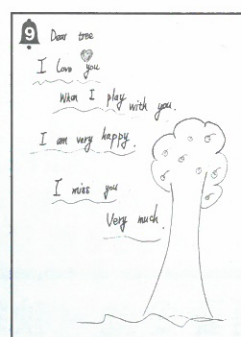 9 Dear tree
I Love you
When I play with you.
I am very happy.
I miss you
Very much.